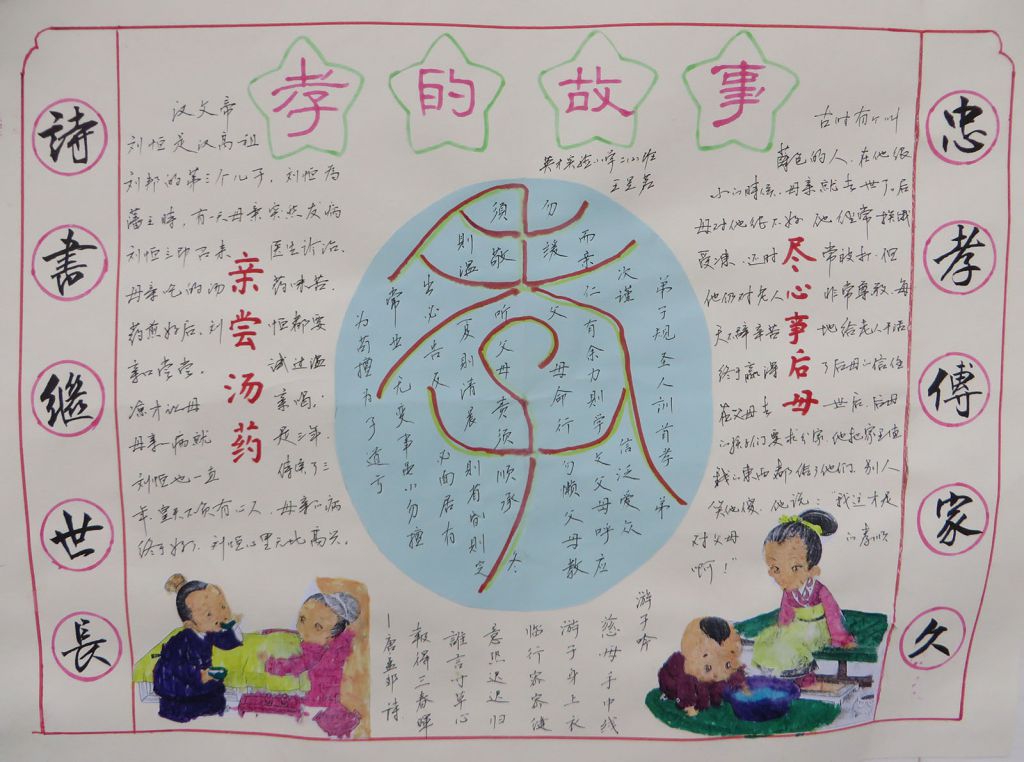 孝的故事
忠孝傳家久
詩書繼世長
英才实验小学二(2)班
汉文帝
刘恒是汉高祖
刘邦的第三个儿子。刘恒为
藩王時,有一天母亲突然发病
刘恒立即召来 医生诊治.
母亲吃的汤 药味苦.
药煎好后,刘 恒都要
亲口尝尝. 试过温
凉才让母 亲喝.
母亲一病就 是三年.
刘恒也一直 侍奉了三
年,皇天不负有心人,母亲的病
终于好了.刘恒心里无比高兴.
亲尝汤药
弟子规圣人訓首孝弟
次谨信泛愛众
而亲仁有余力則学文父母呼应
勿缓父母命行勿懒父母教
須敬听父母责须順承冬
則温夏則清晨則省昏則定
出必告反必面居有
常业无变事虽小勿擅
为苟擅为子道亏
古时有个叫
包的人.在他很
小的時候,母亲就去世了。后
母对他很不好 他经常挨饿
受凍.还时 常被打.但
他仍对老人 非常尊敬.每
天不辞辛苦 地给老人干活
终于赢得 了后母的信任
在父母去 世后,后母
的孩子们要求分家.他把家里值
钱的東西都给了他们.别人
笑他傻.他说:"我这才是
对父母 的孝顺
啊!"
尽心事后母
游子吟
慈母手中线
游子身上衣
临行密密缝
意恐迟迟归
誰言寸草心
報得三春暉
—唐孟郊诗